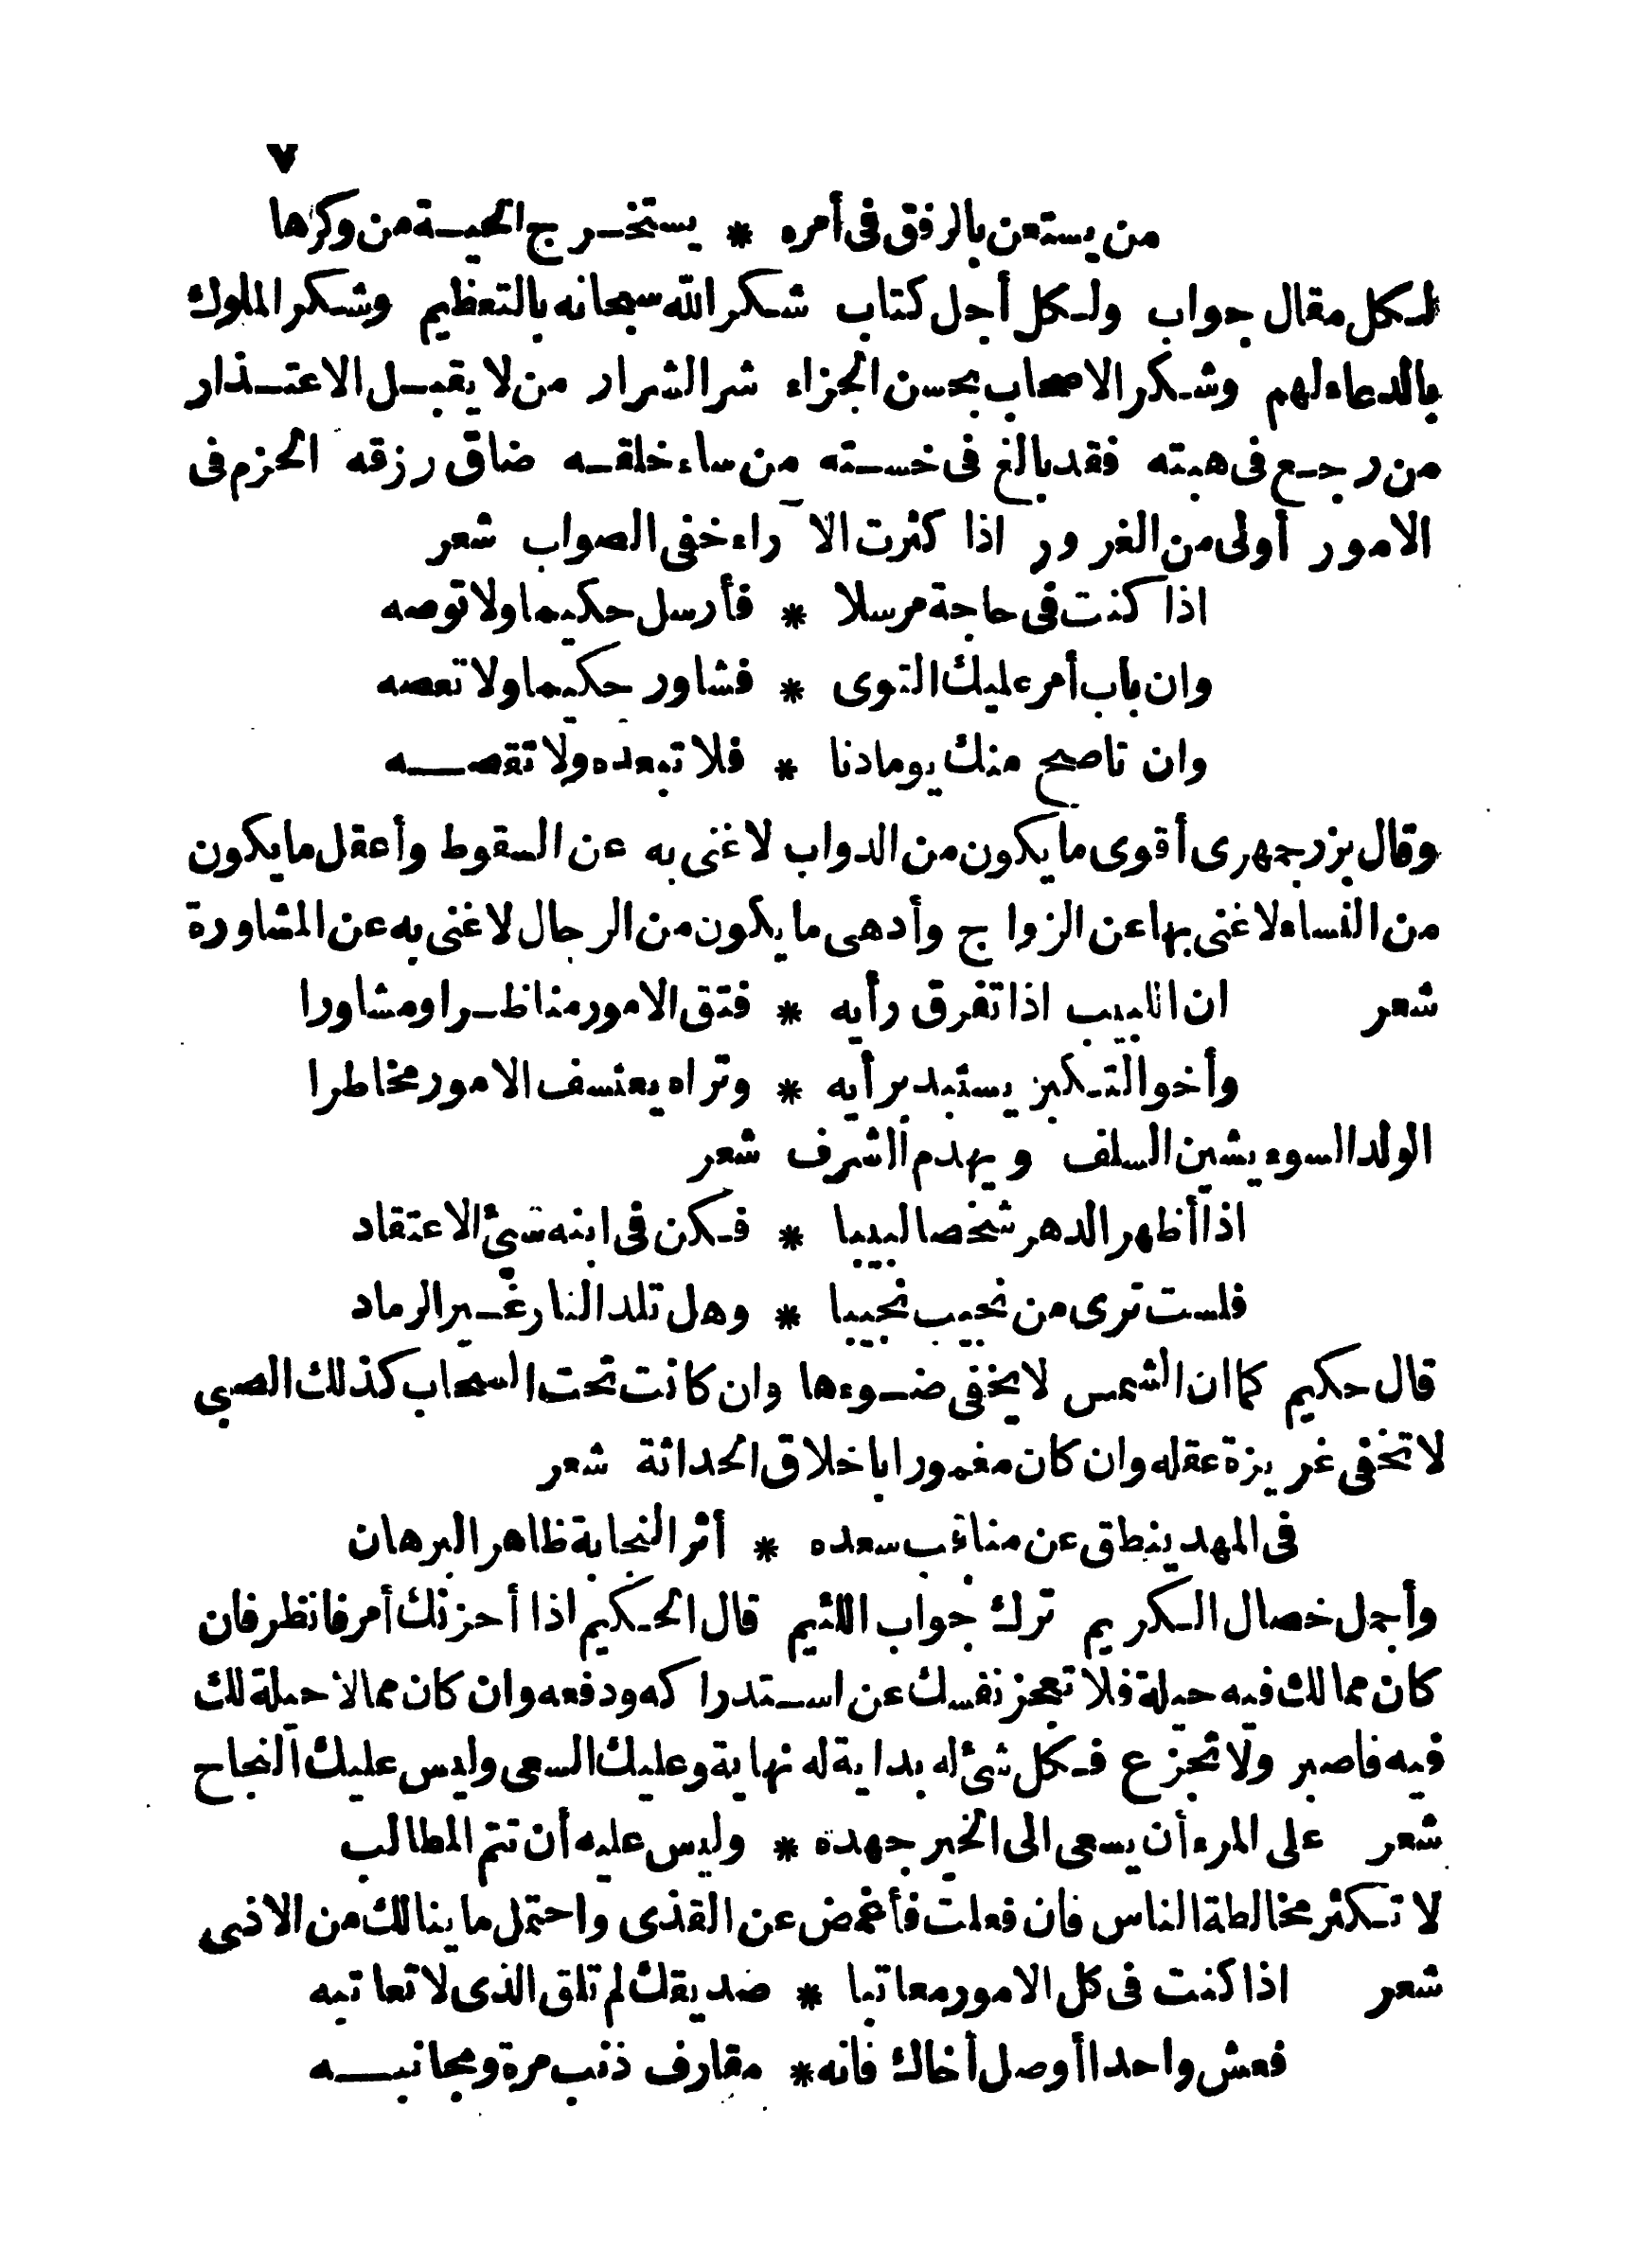 ٧
من يستعن بالرفق فى أمره * يستخرج الحية من وكرها
لكل مقال جواب ولكل أجل كتاب شكر الله سبحانه بالتعظيم وشكر الملوك
بالدعاء لهم وشكر الاصحاب بحسن الجزاء شر الشرار من لا يقبل الاعتذار
من رجع فى هبته فقد بالغ فى خسته من ساء خلقه ضاق رزقه الحزم فى
الامور أولى من الغرور اذا كثرت الآراء خفى الصواب شعر
اذا كنت فى حاجة مرسلا * فأرسل حكيما ولا توصه
وان باب أمر عليك التوى * فشاور حكيما ولا تعصه
وان ناصح منك يوما دنا * فلا تبعده ولا تقصه
وقال بزرجمهرى أقوى ما يكون من الدواب لا غنى به عن السقوط وأعقل ما يكون
من النساء لا غنى بها عن الزواج وأدهى ما يكون من الرجال لا غنى به عن المشاورة
شعر ان اللبيب اذا تفرق رأيه * فتق الامور مناظرا ومشاورا
وأخو التكبر يستبد برأيه * وتراه يعتسف الامور مخاطرا
الولد السوء يشين السلف ويهدم الشرف شعر
اذا أظهر الدهر شخصا لبيبا * فكن فى ابنه سيئ الاعتقاد
فلست ترى من نجيب نجيبا * وهل تلد النار غير الرماد
قال حكيم كما ان الشمس لا يخفى ضوءها وان كانت تحت السحاب كذلك الصبى
لا تخفى غريزة عقله وان كان مغمورا باخلاق الحداثة شعر
فى المهد ينطق عن مناقب سعده * أثر النجابة ظاهر البرهان
وأجمل خصال الكريم ترك جواب اللئيم قال الحكيم اذا أحزنك أمر فانظر فان
كان مما لك فيه حيلة فلا تعجز نفسك عن استدراكه ودفعه وان كان مما لا حيلة لك
فيه فاصبر ولا تجزع فكل شئ له بداية له نهاية وعليك السعى وليس عليك النجاح
شعر على المرء أن يسعى الى الخير جهده * وليس عليه أن تتم المطالب
لا تكثر مخالطة الناس فان فعلت فأغمض عن القذى واحتمل ما ينالك من الاذى
شعر اذا كنت فى كل الامور معاتبا * صديقك لم تلق الذى لا تعاتبه
فعش واحدا أو صل أخاك فانه * مقارف ذنب مرة ومجانبه